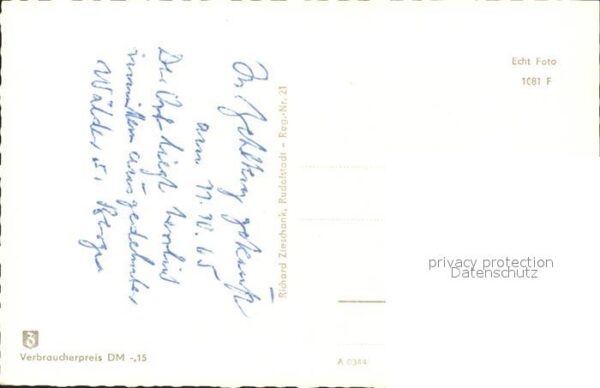 gekauft
am 11.10.65
Der Ort liegt herrlich
inmitten ausgedehnter
Wälder u. Berge
Richard Zieschank, Rudolstadt - Reg.-Nr. 21
Echt Foto
1081 F
privacy protection
Datenschutz
Verbraucherpreis DM -,15
A 0344